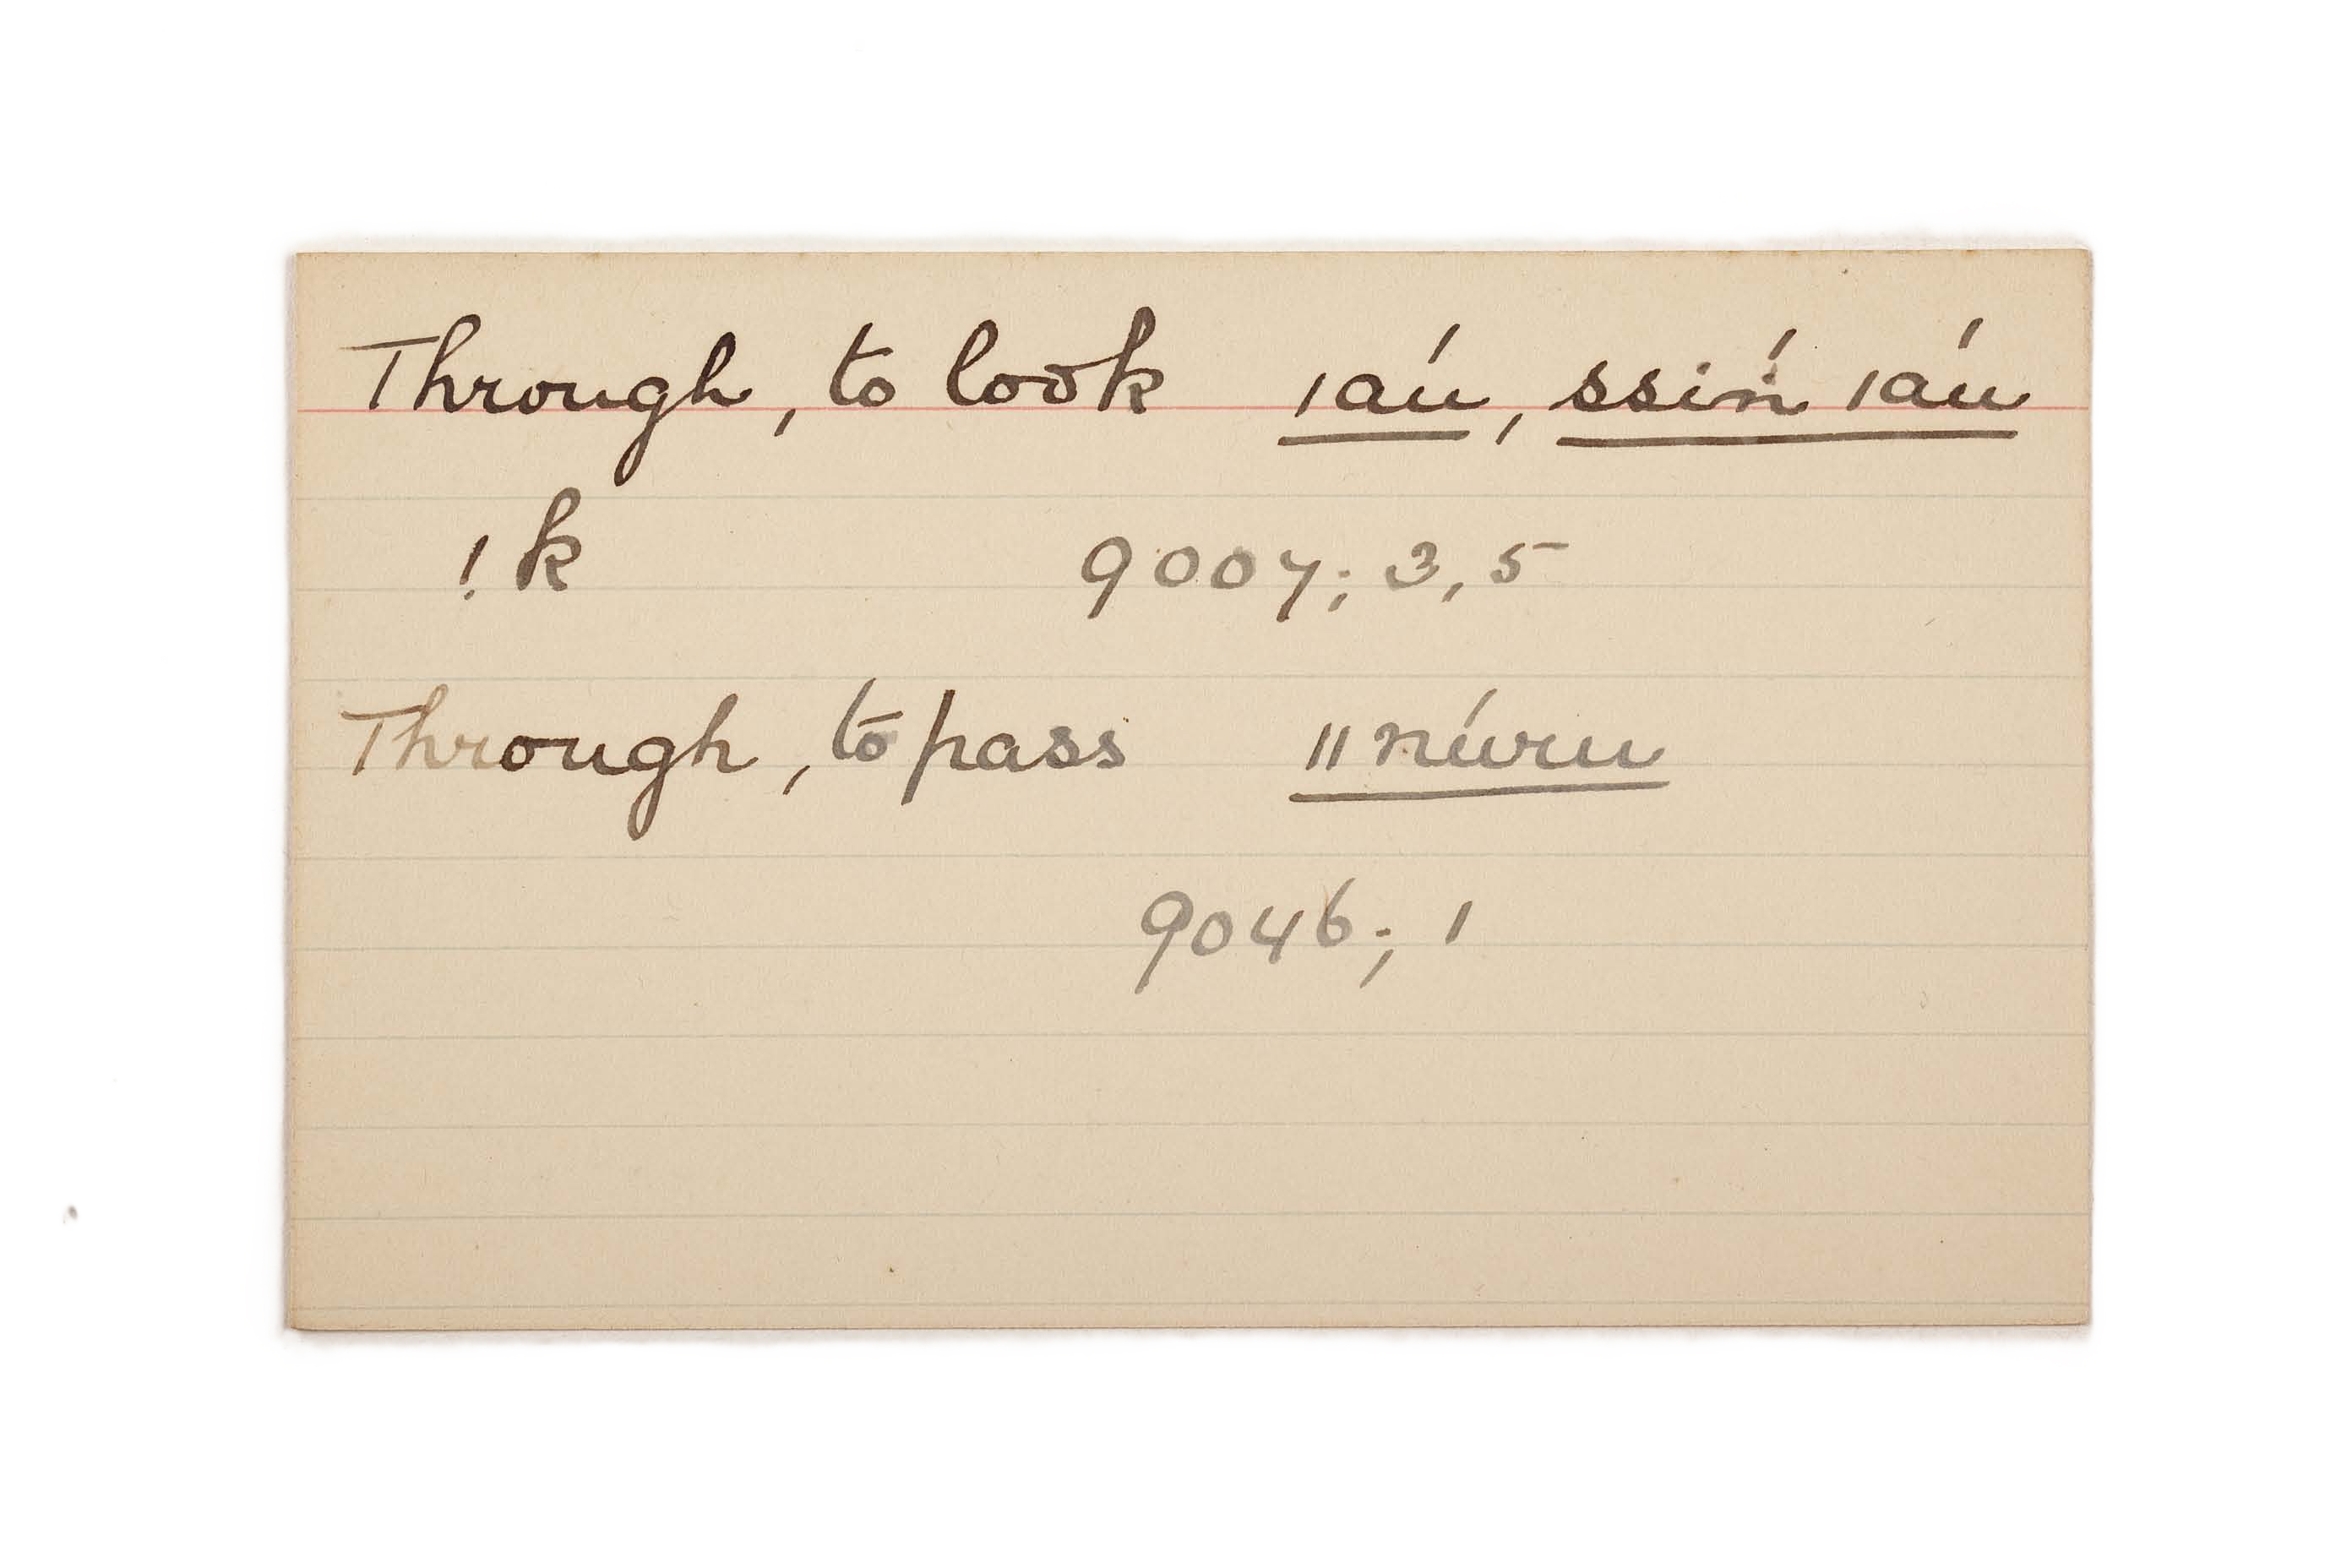 Through, to look ǀaú, ssiń ǀaú
!k 9007; 3, 5
Through, to pass ǁnúru
9046; 1